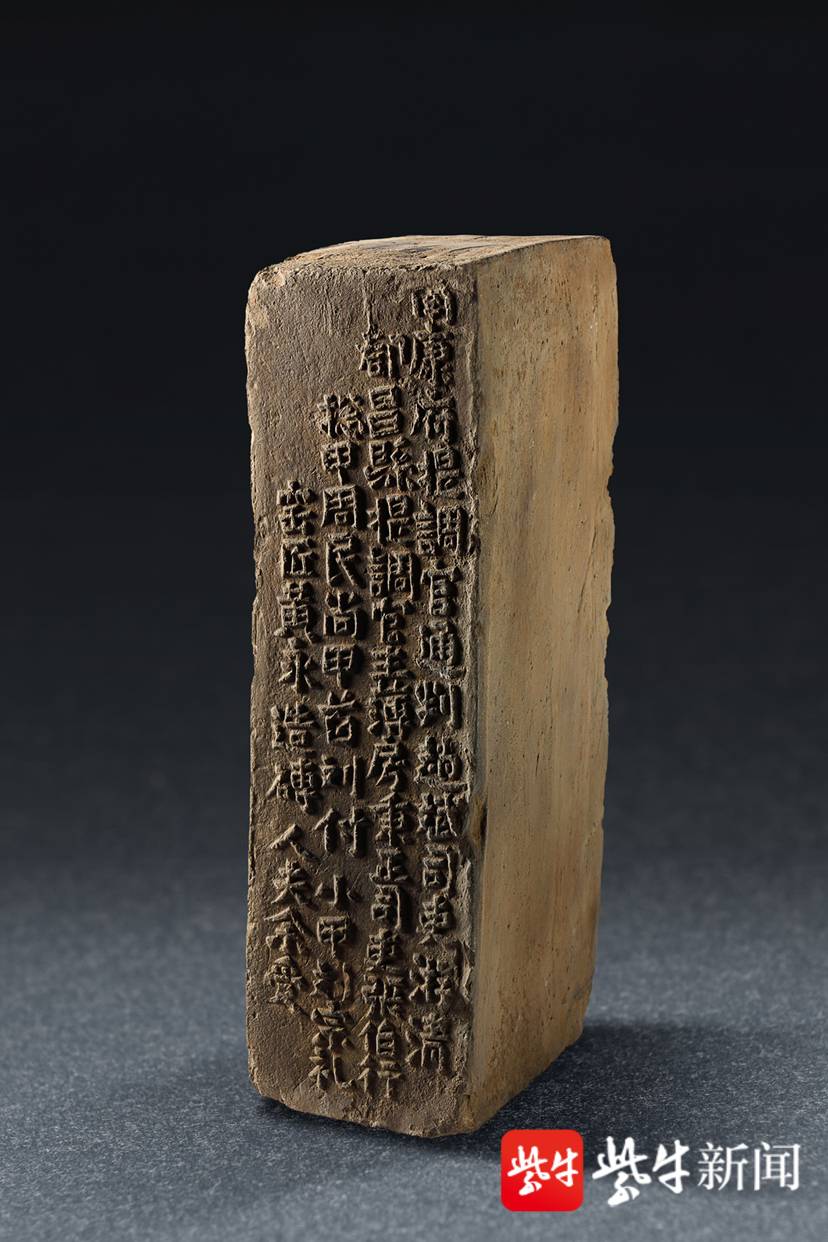 南康府提調官通判趙斌司吏游清
都昌縣提調官主簿房秉正司吏張伯行
捴甲周民尚甲首刘付小甲刘宗礼
窑匠黃永造磚人夫余受
紫牛
紫牛新闻